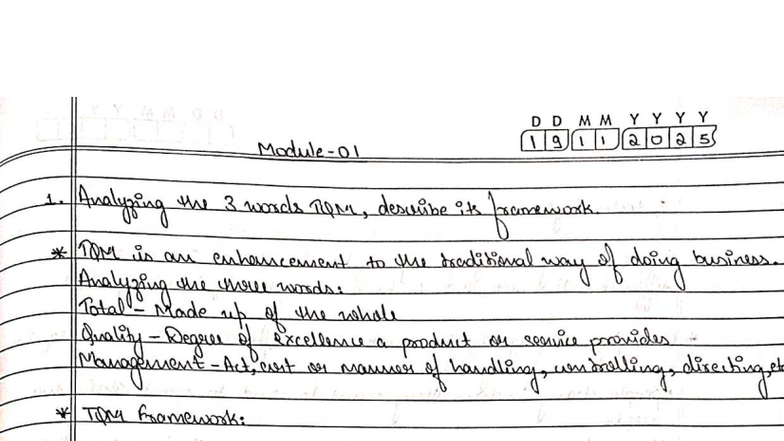 D D M M Y Y Y Y
19 11 2025
Module-01
1. Analyzing the 3 words TQM, describe its framework.
* TQM is an enhancement to the traditional way of doing business.
Analyzing the three words:
Total - Made up of the whole
Quality - Degree of excellence a product or service provides
Management - Act, art or manner of handling, controlling, directing, etc
* TQM Framework: